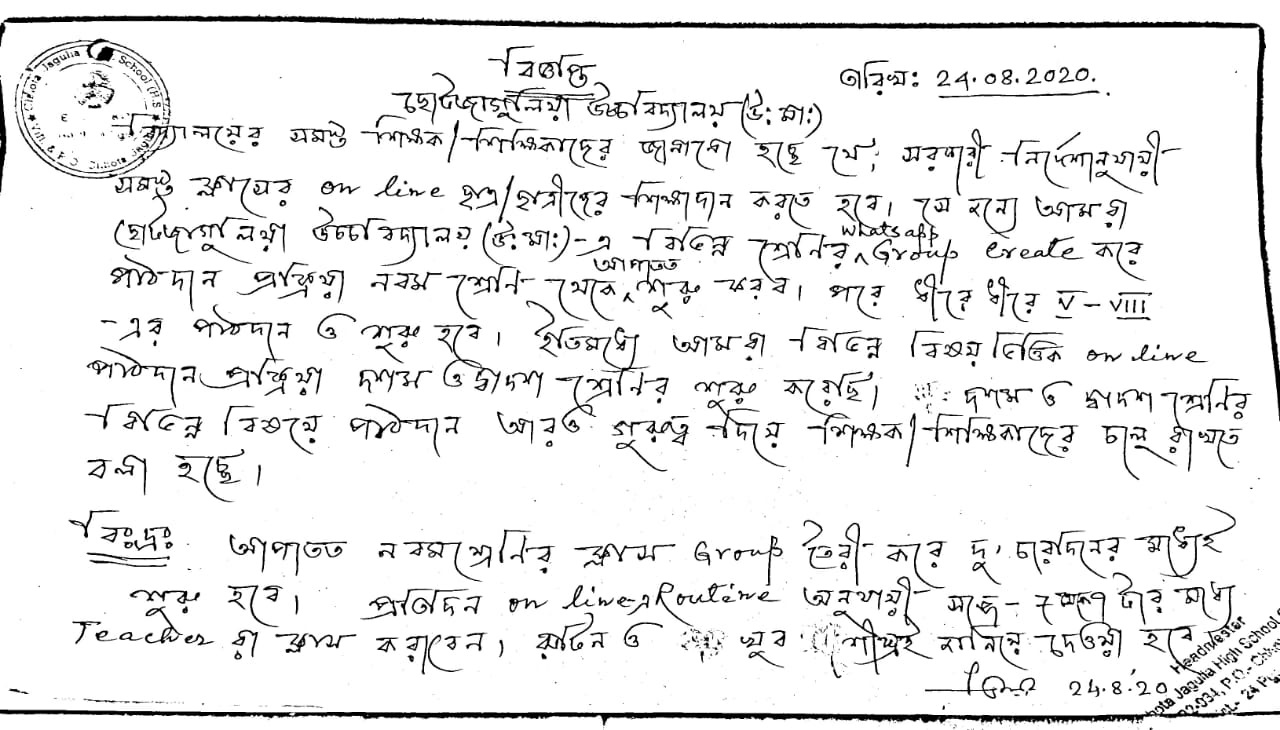 বিজ্ঞপ্তি
তারিখ: 24.08.2020.
ছোটজাগুলিয়া উচ্চবিদ্যালয় (উ: মা:)
বিদ্যালয়ের সমস্ত শিক্ষক/শিক্ষিকাদের জানানো হচ্ছে যে, সরকারী নির্দেশানুযায়ী
সমস্ত ক্লাসের on line ছাত্র/ছাত্রীদের শিক্ষাদান করতে হবে। সে জন্যে আমরা
ছোটজাগুলিয়া উচ্চবিদ্যালয় (উ: মা:)-এ বিভিন্ন শ্রেনির whatsapp Group create করে
পাঠদান প্রক্রিয়া নবম শ্রেনি থেকে আপাতত শুরু করব। পরে ধীরে ধীরে V - VIII
-এর পাঠদান ও শুরু হবে। ইতিমধ্যে আমরা বিভিন্ন বিষয় ভিত্তিক on line
পাঠদান প্রক্রিয়া দশম ও দ্বাদশ শ্রেনির শুরু করেছি। দশম ও দ্বাদশ শ্রেনির
বিভিন্ন বিষয়ে পাঠদান আরও গুরুত্ব দিয়ে শিক্ষক/শিক্ষিকাদের চালু রাখতে
বলা হচ্ছে।
বিঃদ্রঃ আপাতত নবমশ্রেনির ক্লাস Group তৈরী করে দু'চারদিনের মধ্যেই
শুরু হবে। প্রতিদিন on line Routine অনুযায়ী সন্ধে - টার মধ্যে
Teacher রা ক্লাস করাবেন। রুটিন ও খুব শীঘ্রই জানিয়ে দেওয়া হবে
24.8.20
Headmaster
Jagulia High School